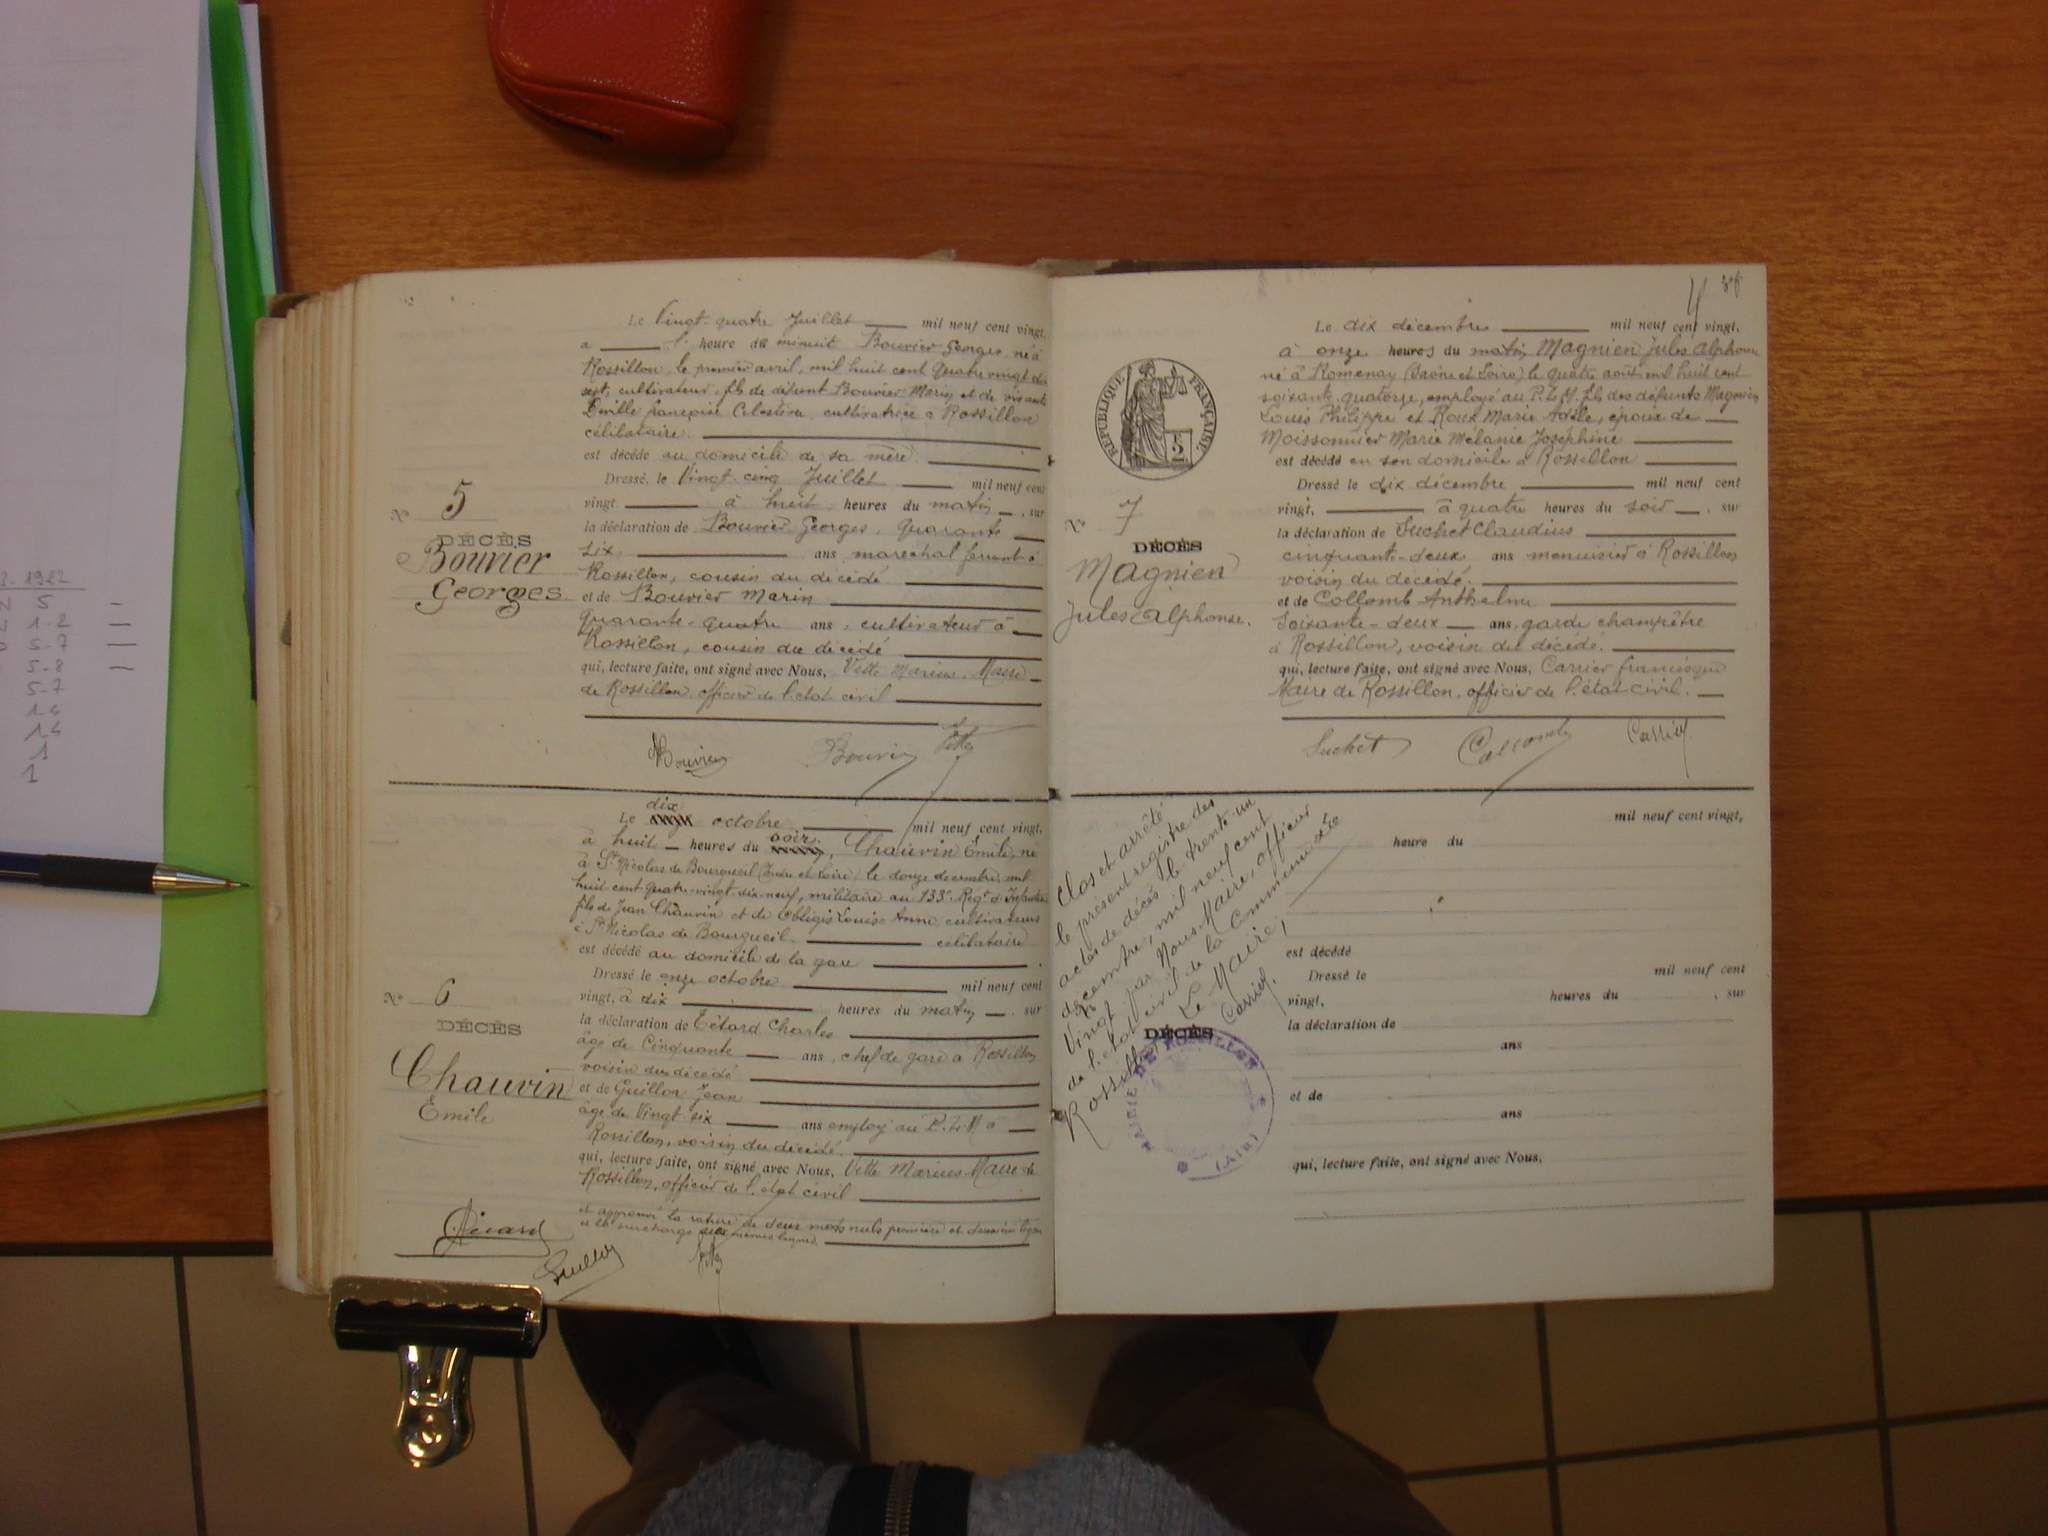 Le Vingt-quatre Juillet mil neuf cent vingt,
a 1 heure de minuit Bouvier Georges, né à
Rossillon, le premier avril, mil huit cent quatre vingt dix
sept, cultivateur, fils de défunt Bouvier Marin et de vivante
françoise Célestine cultivatrice a Rossillon
célibataire.
est décédé au domicile de sa mère.
Dressé, le Vingt-cinq Juillet mil neuf cent
vingt à huit heures du matin, sur
la déclaration de Bouvier Georges, quarante
six, ans maréchal ferrant à
Rossillon, cousin du décédé
et de Bouvier Marin
quarante-quatre ans, cultivateur à
Rossillon, cousin du décédé
qui, lecture faite, ont signé avec Nous, Vette Marius, Maire
de Rossillon officier de l'état civil
Bouvier Bouvier Vette
N° 5
DÉCÈS
Bouvier
Georges
dix
Le octobre mil neuf cent vingt,
soir
à huit heures du , Chauvin Emile, né
à St Nicolas de Bourgueil (Indre et Loire) le douze décembre mil
huit cent quatre-vingt dix-neuf, militaire au 133e Regt d'Infanterie
fils de Jean Chauvin et de Louise Anne cultivateurs
à St Nicolas de Bourgueil. célibataire
est décédé au domicile de la gare
Dressé le onze octobre mil neuf cent
vingt, à dix heures du matin, sur
la déclaration de Charles
âgé de Cinquante ans, chef de gare à Rossillon
voisin du décédé
et de Guillon Jean
âgé de Vingt-six ans employé au P.L.M a
Rossillon, voisin du décédé.
qui, lecture faite, ont signé avec Nous, Vette Marius Maire de
Rossillon, officier de l'état civil
et approuvé la rature de deux mots nuls première et deuxième lignes
et la surcharge mêmes lignes
Guillon Vette
N° 6
DÉCÈS
Chauvin
Emile
4
Le dix décembre mil neuf cent vingt,
à onze heures du matin Magnien Jules Alphonse
né à Romenay (Saône et Loire) le quatre août mil huit cent
soixante-quatorze, employé au P.L.M. fils des défunts Magnien
Louis Philippe et Roux Marie Adèle, époux de
Moissonnier Marie Mélanie Joséphine
est décédé en son domicile à Rossillon
Dressé le dix décembre mil neuf cent
vingt, à quatre heures du soir, sur
la déclaration de Suchet Claudius
cinquante-deux ans menuisier à Rossillon
voisin du décédé.
et de Collomb Anthelme
Soixante-deux ans, garde champêtre
à Rossillon, voisin du décédé.
qui, lecture faite, ont signé avec Nous, Carrier francisque
Maire de Rossillon, officier de l'état civil.
Suchet Collomb Carrier
RÉPUBLIQUE FRANÇAISE
N° 7
DÉCÈS
Magnien
Jules Alphonse.
Clos et arrêté
le présent registre des
actes de décès le trente-un
décembre, mil neuf cent
Vingt par Nous Maire, officier
de l'état civil de la Commune de
Rossillon
Le Maire,
Carrier.
MAIRIE DE ROSSILLON
(AIN)
mil neuf cent vingt,
heure du
est décédé
Dressé le mil neuf cent
vingt, heures du , sur
la déclaration de
ans
et de
ans
qui, lecture faite, ont signé avec Nous,
DÉCÈS
1922
5
1-2
5-7
5-8
5-7
14
14
1
1